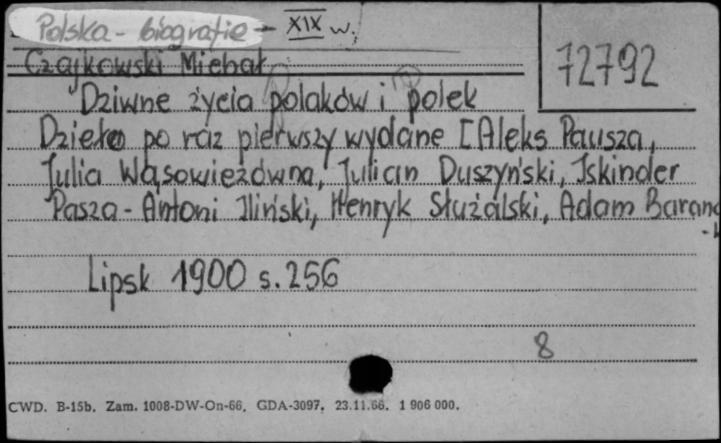 Polska - biografie - XIX w.
72792
Czajkowski Michał
Dziwne życia polaków i polek
Dzieło po raz pierwszy wydane [Aleks Pausza,
Julia Wąsowiczówna, Julian Duszyński, Iskinder
Pasza - Antoni Iliński, Henryk Służalski, Adam Barano
Lipsk 1900 s. 256
8
CWD. B-15b. Zam. 1008-DW-On-66. GDA-3097. 23.11.66. 1 906 000.